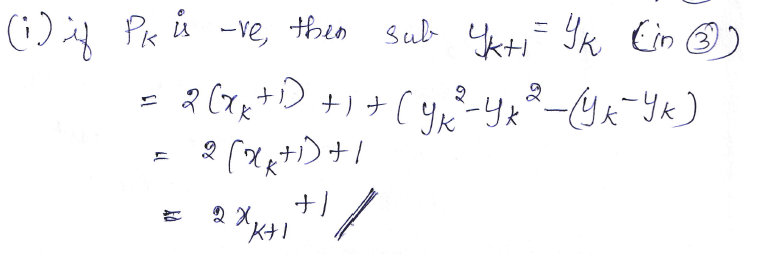 (i) if Pₖ is -ve, then sub yₖ₊₁ = yₖ (in ③)
= 2(xₖ+1) +1 + (yₖ²-yₖ²-(yₖ-yₖ)
= 2(xₖ+1)+1
= 2xₖ₊₁ +1 //